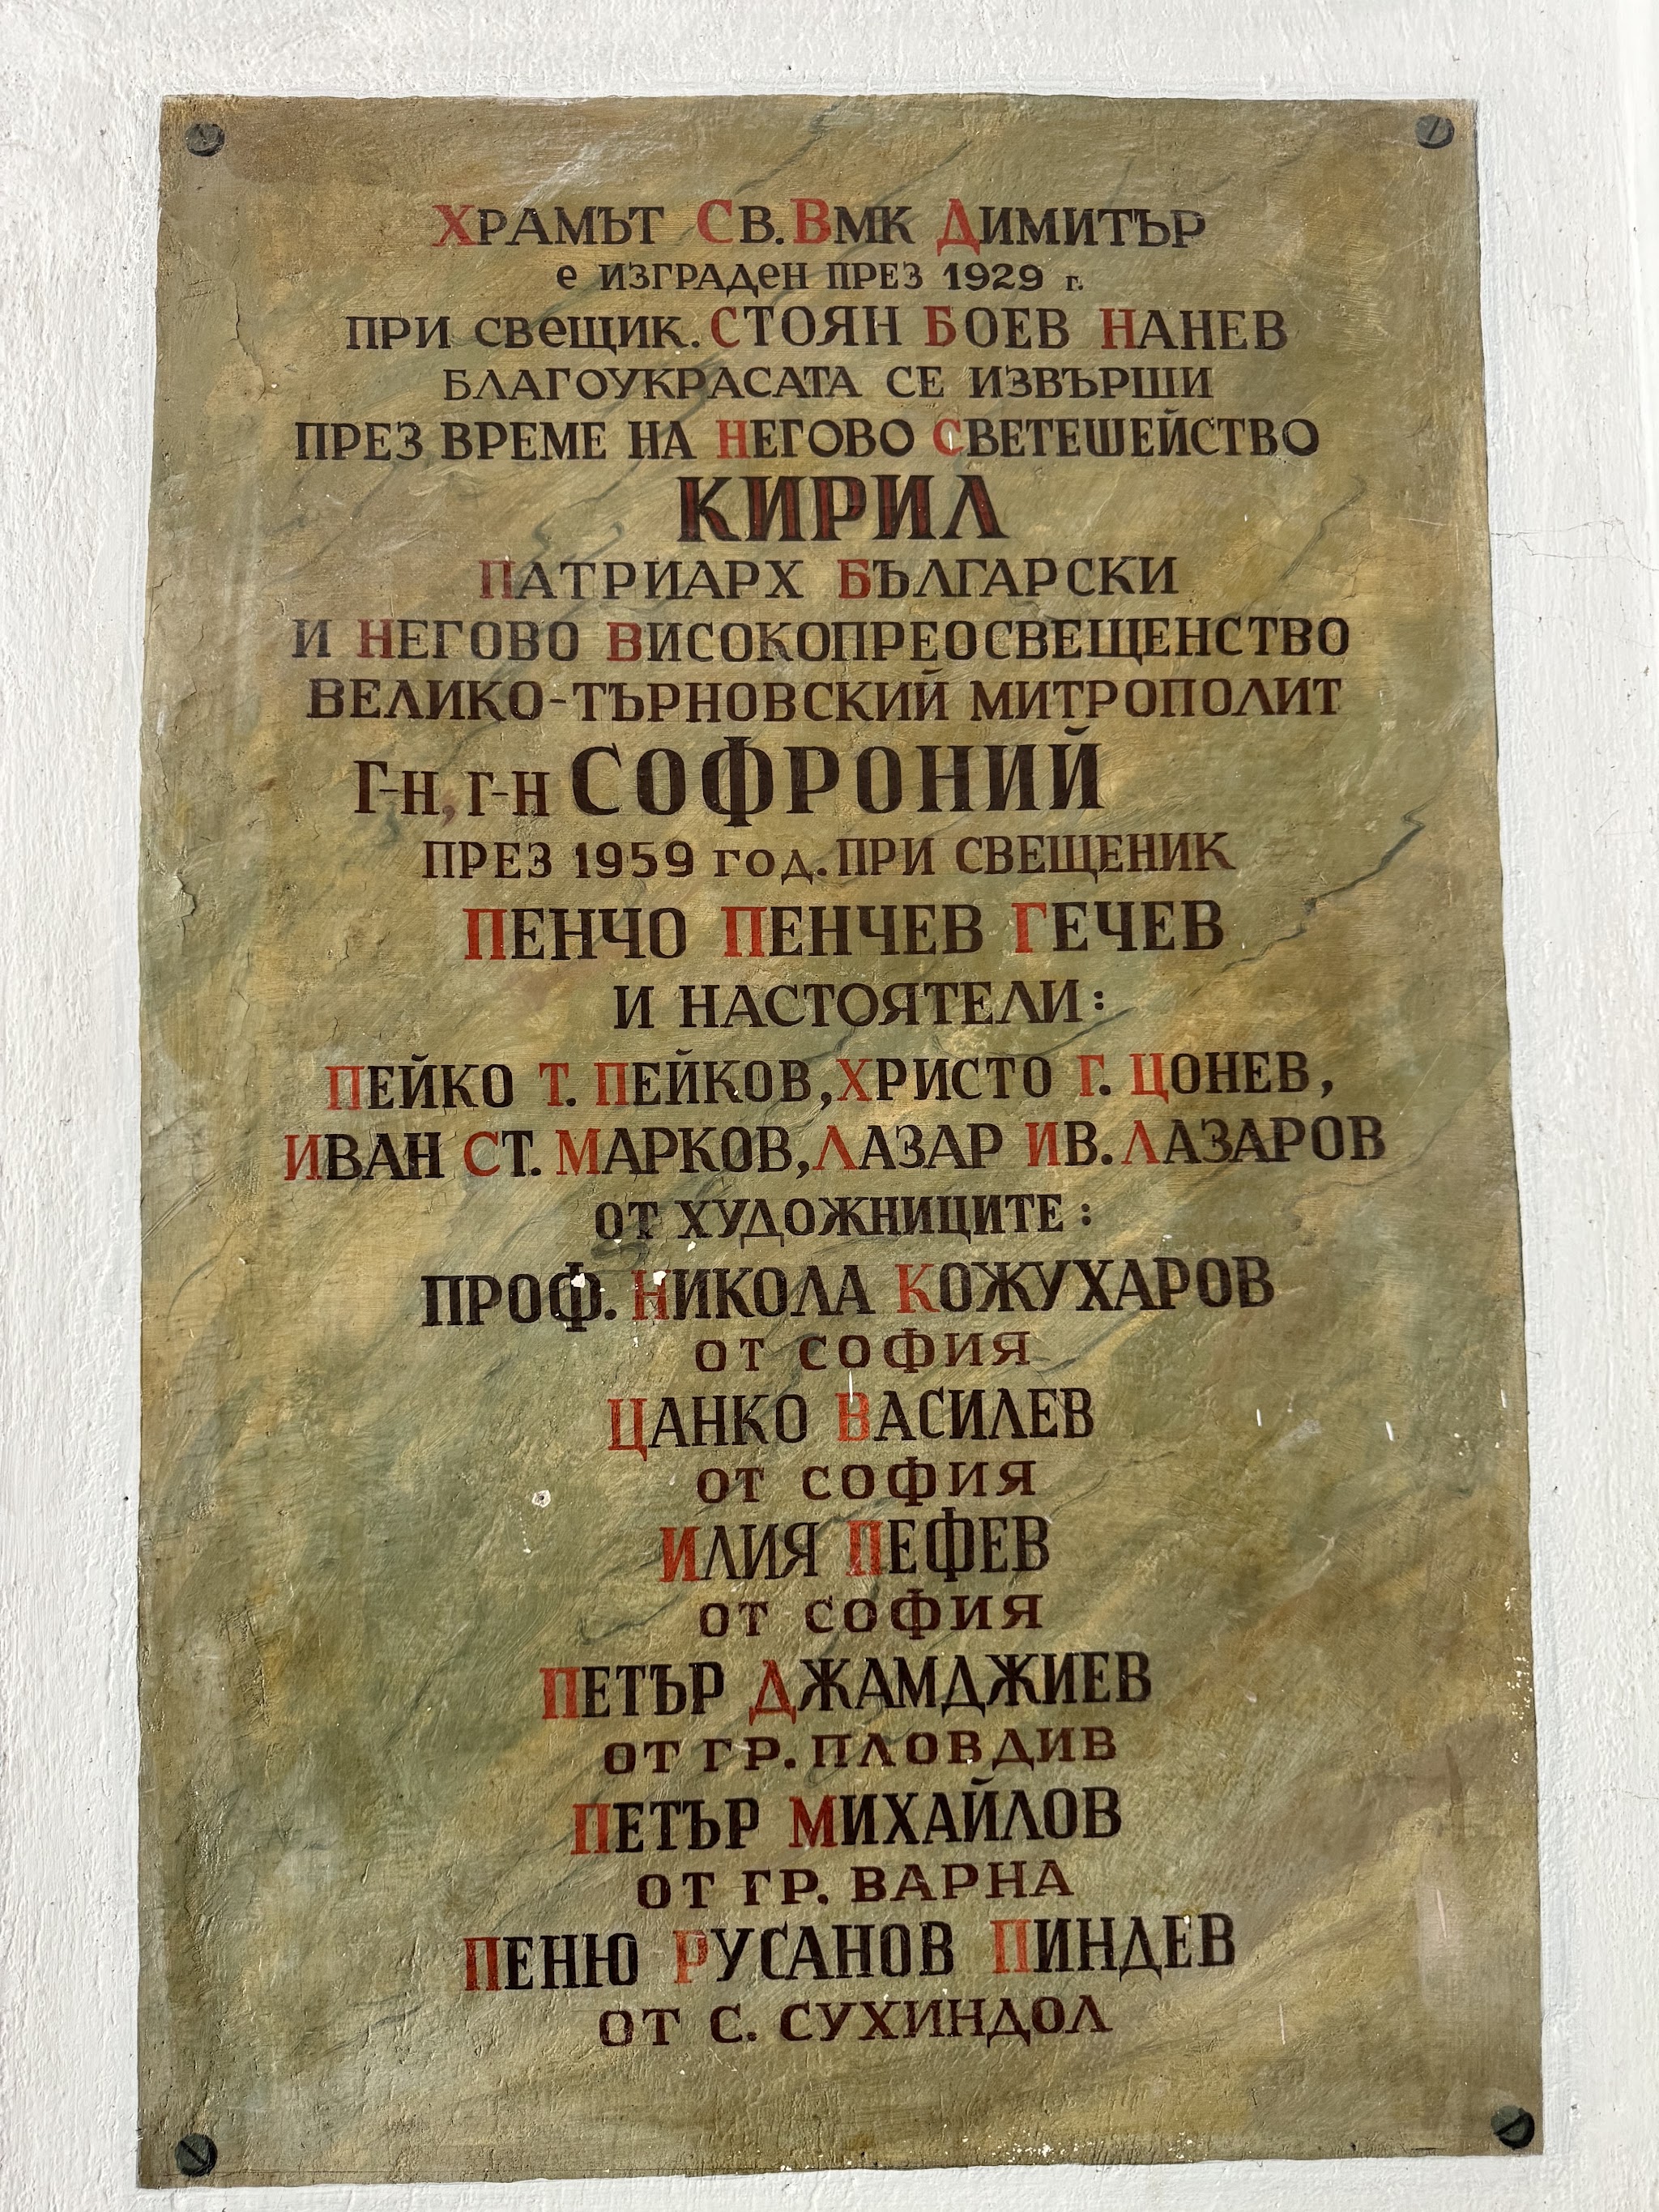 ХРАМЪТ СВ. ВМК ДИМИТЪР
е ИЗГРАДеН ПРЕЗ 1929 г.
ПРИ СВеЩИК. СТОЯН БОЕВ НАНЕВ
БЛАГОУКРАСАТА СЕ ИЗВЪРШИ
ПРЕЗ ВРЕМЕ НА НЕГОВО СВЕТЕШЕЙСТВО
КИРИЛ
ПАТРИАРХ БЪЛГАРСКИ
И НЕГОВО ВИСОКОПРЕОСВЕЩЕНСТВО
ВЕЛИКО-ТЪРНОВСКИЙ МИТРОПОЛИТ
Г-Н, Г-Н СОФРОНИЙ
ПРЕЗ 1959 год. ПРИ СВЕЩЕНИК
ПЕНЧО ПЕНЧЕВ ГЕЧЕВ
И НАСТОЯТЕЛИ:
ПЕЙКО Т. ПЕЙКОВ, ХРИСТО Г. ЦОНЕВ,
ИВАН СТ. МАРКОВ, ЛАЗАР ИВ. ЛАЗАРОВ
ОТ ХУДОЖНИЦИТЕ:
ПРОФ. НИКОЛА КОЖУХАРОВ
ОТ СОФИЯ
ЦАНКО ВАСИЛЕВ
ОТ СОФИЯ
ИЛИЯ ПЕФЕВ
ОТ СОФИЯ
ПЕТЪР ДЖАМДЖИЕВ
ОТ ГР. ПЛОВДИВ
ПЕТЪР МИХАЙЛОВ
ОТ ГР. ВАРНА
ПЕНЮ РУСАНОВ ПИНДЕВ
ОТ С. СУХИНДОЛ